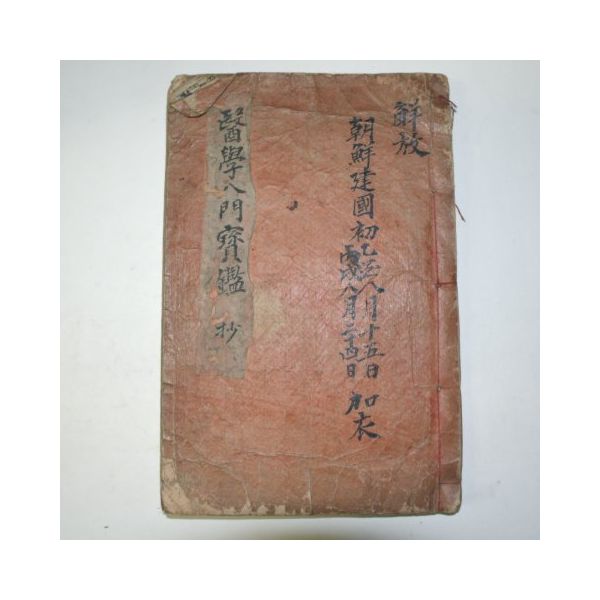 解放
朝鮮建國初乙酉八月十五日
丙戌八月二十四日
加衣
醫學入門寶鑑 抄